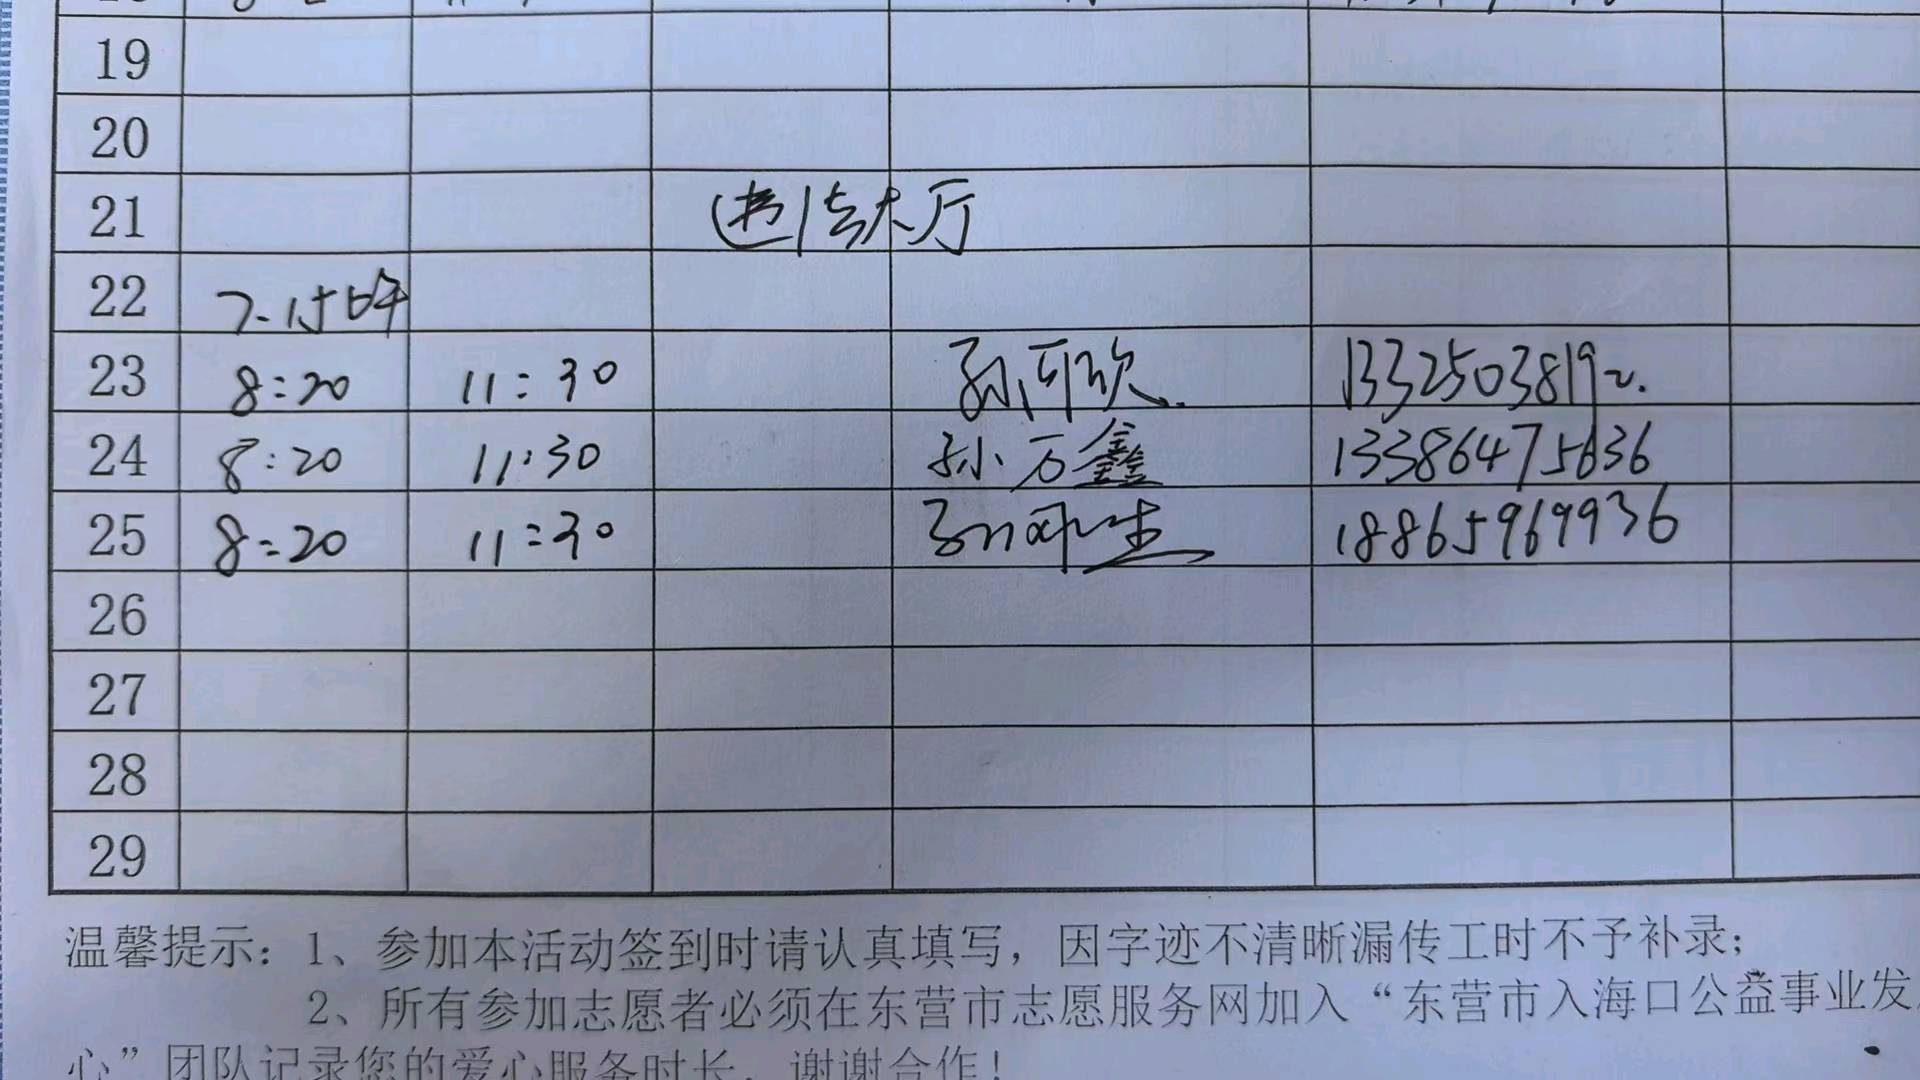 19
20
21 违法大厅
22
23 8:20 11:30 孙可欣 13325038192.
24 8:20 11:30 孙万鑫 13386475636
25 8:20 11:30 18865969936
26
27
28
29
温馨提示：1、参加本活动签到时请认真填写，因字迹不清晰漏传工时不予补录；
2、所有参加志愿者必须在东营市志愿服务网加入“东营市入海口公益事业发
心”团队记录您的爱心服务时长，谢谢合作！